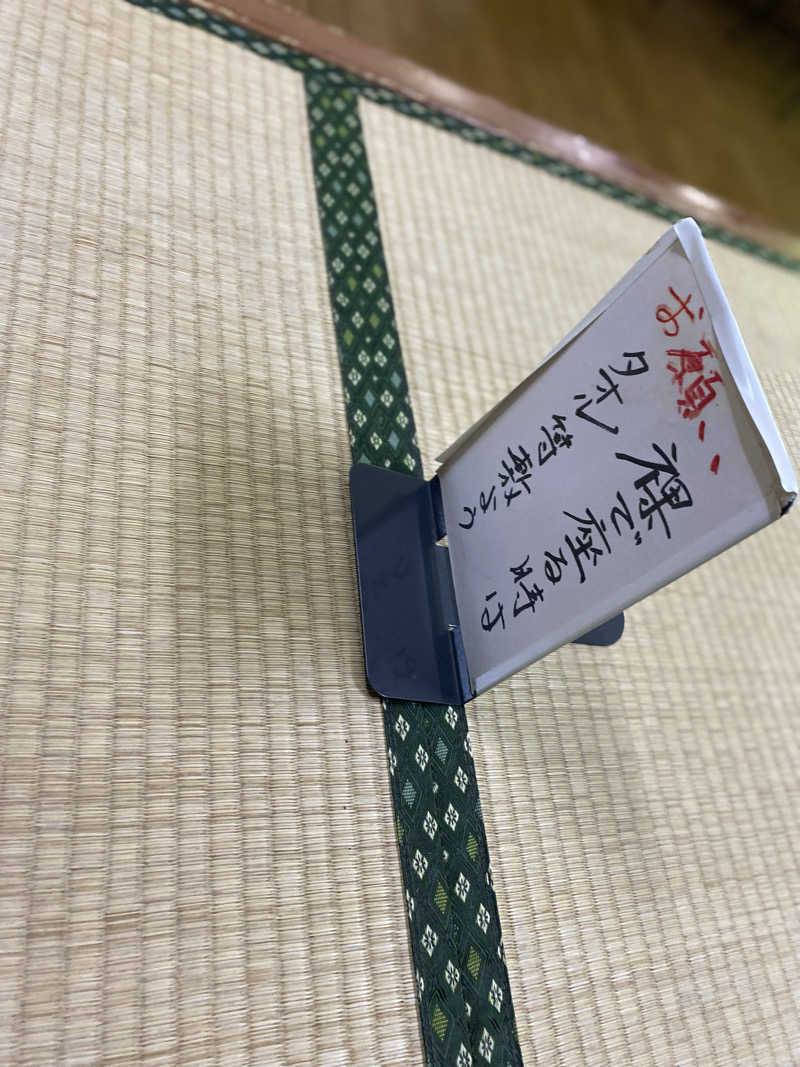 お願い
裸で座る時は
タオル等敷